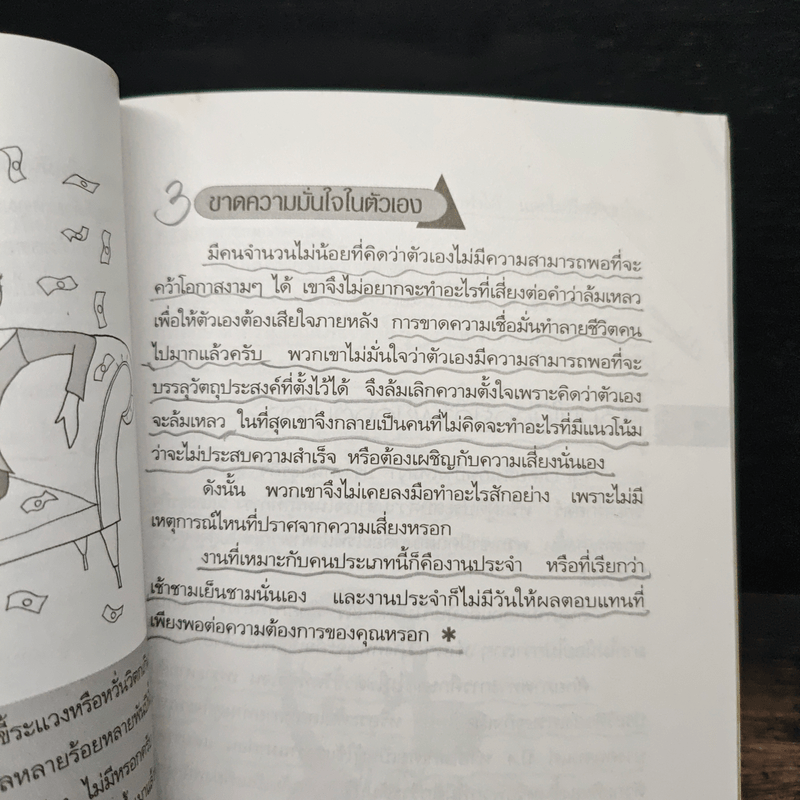 3 ขาดความมั่นใจในตัวเอง
มีคนจำนวนไม่น้อยที่คิดว่าตัวเองไม่มีความสามารถพอที่จะ
คว้าโอกาสงามๆ ได้ เขาจึงไม่อยากจะทำอะไรที่เสี่ยงต่อคำว่าล้มเหลว
เพื่อให้ตัวเองต้องเสียใจภายหลัง การขาดความเชื่อมั่นทำลายชีวิตคน
ไปมากแล้วครับ พวกเขาไม่มั่นใจว่าตัวเองมีความสามารถพอที่จะ
บรรลุวัตถุประสงค์ที่ตั้งไว้ได้ จึงล้มเลิกความตั้งใจเพราะคิดว่าตัวเอง
จะล้มเหลว ในที่สุดเขาจึงกลายเป็นคนที่ไม่คิดจะทำอะไรที่มีแนวโน้ม
ว่าจะไม่ประสบความสำเร็จ หรือต้องเผชิญกับความเสี่ยงนั่นเอง
ดังนั้น พวกเขาจึงไม่เคยลงมือทำอะไรสักอย่าง เพราะไม่มี
เหตุการณ์ไหนที่ปราศจากความเสี่ยงหรอก
งานที่เหมาะกับคนประเภทนี้ก็คืองานประจำ หรือที่เรียกว่า
เช้าชามเย็นชามนั่นเอง และงานประจำก็ไม่มีวันให้ผลตอบแทนที่
เพียงพอต่อความต้องการของคุณหรอก *
ขี้ระแวงหรือหวั่นวิตก
หลายร้อยหลายพัน
ไม่มีหรอก